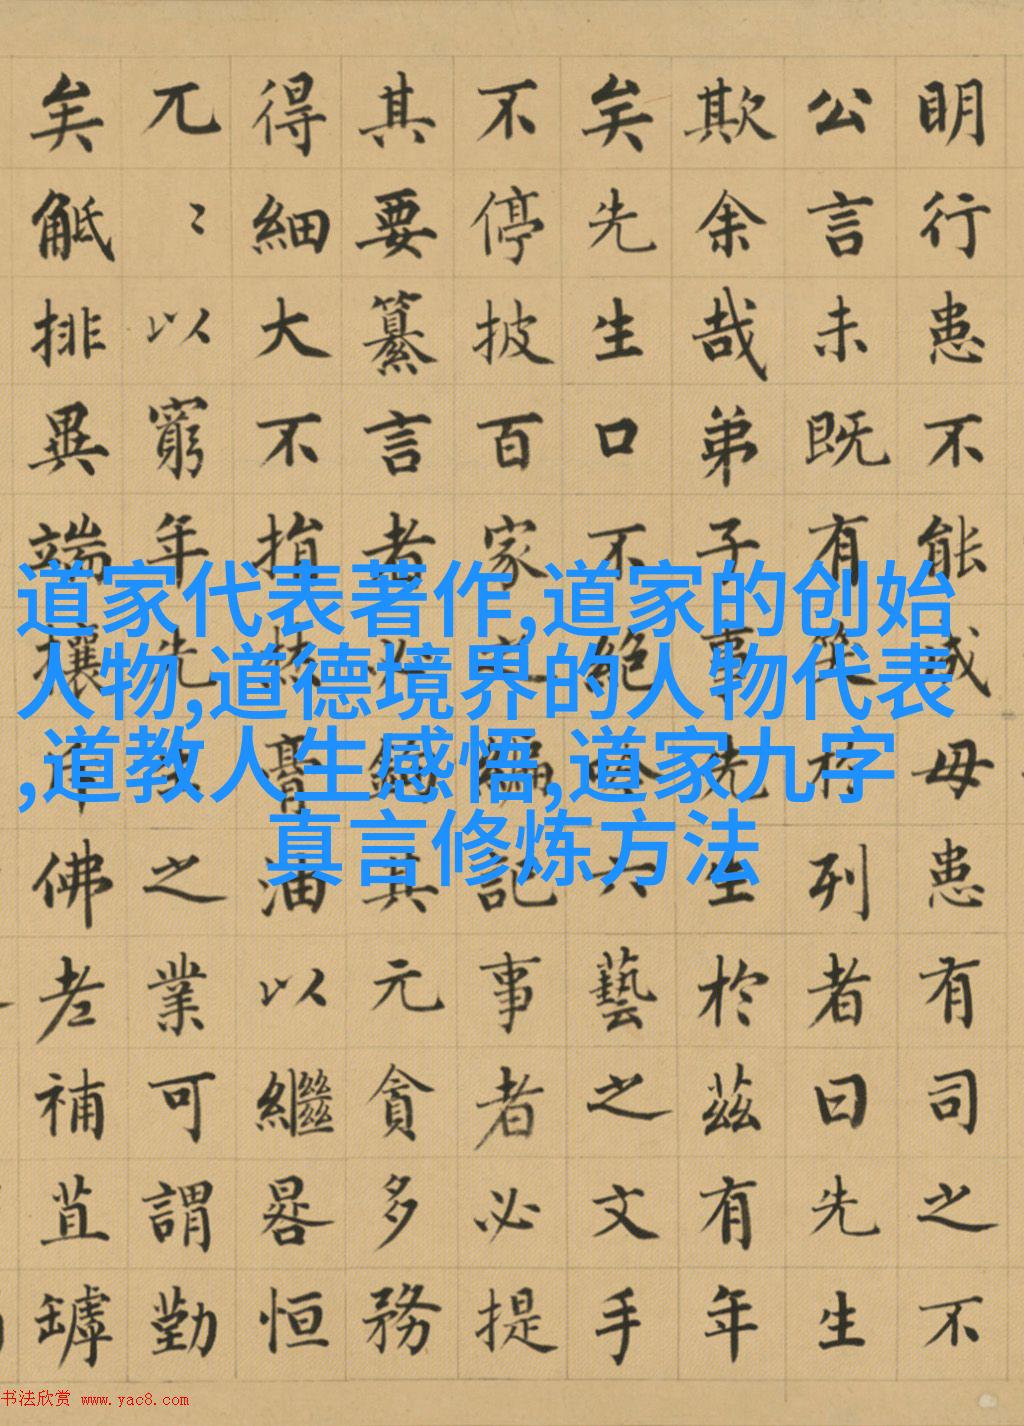 明行患不能成毋患有司之不
公言未既有笑於列者曰先生
欺余哉弟子事先生於茲有年
矣先生口不絕吟六藝之文手
不停披百家之編記事者必提
其要纂言者必鉤其元貪多務
得細大不捐焚膏油以繼晷恒
兀〻以窮年先生之業可謂勤
矣觝排異端攘斥佛老補苴罅
道家代表著作,道家的创始
人物,道德境界的人物代表
,道教人生感悟,道家九字
真言修炼方法
书法欣赏 www.yac8.com